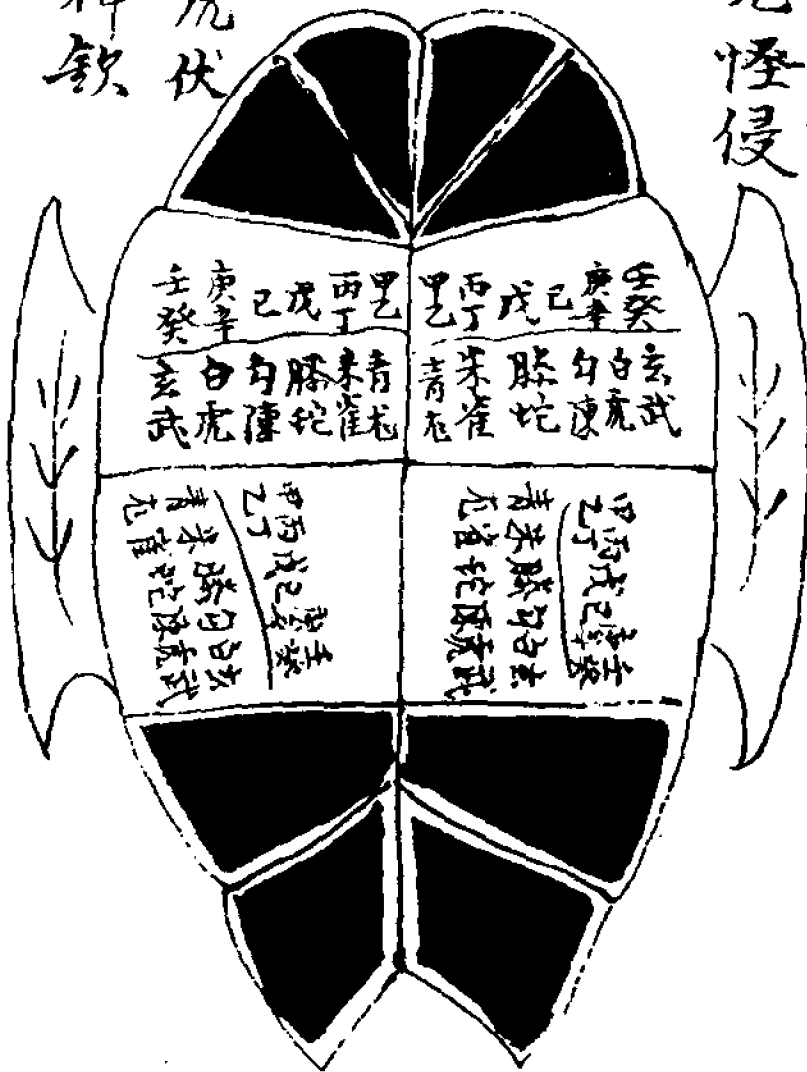 怪侵
伏
欽
壬癸 庚辛 己 戊 丙丁 甲乙
玄武 白虎 勾陳 螣蛇 朱雀 青龙
甲乙 丙丁 戊 己 庚辛 壬癸
青龙 朱雀 螣蛇 勾陳 白虎 玄武
甲乙 丙丁 戊 己 庚辛 壬癸
青龙 朱雀 螣蛇 勾陳 白虎 玄武
甲乙 丙丁 戊 己 庚辛 壬癸
青龙 朱雀 螣蛇 勾陳 白虎 玄武